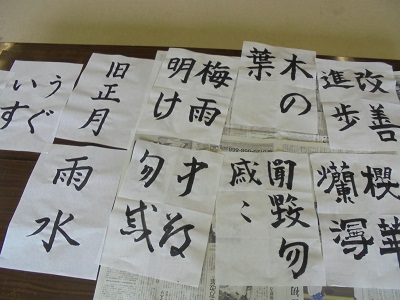 改善
進歩
木の
葉
梅雨
明け
旧正月
うぐ
いす
櫻華
爛漫
聞毀勿
戚々
雨水